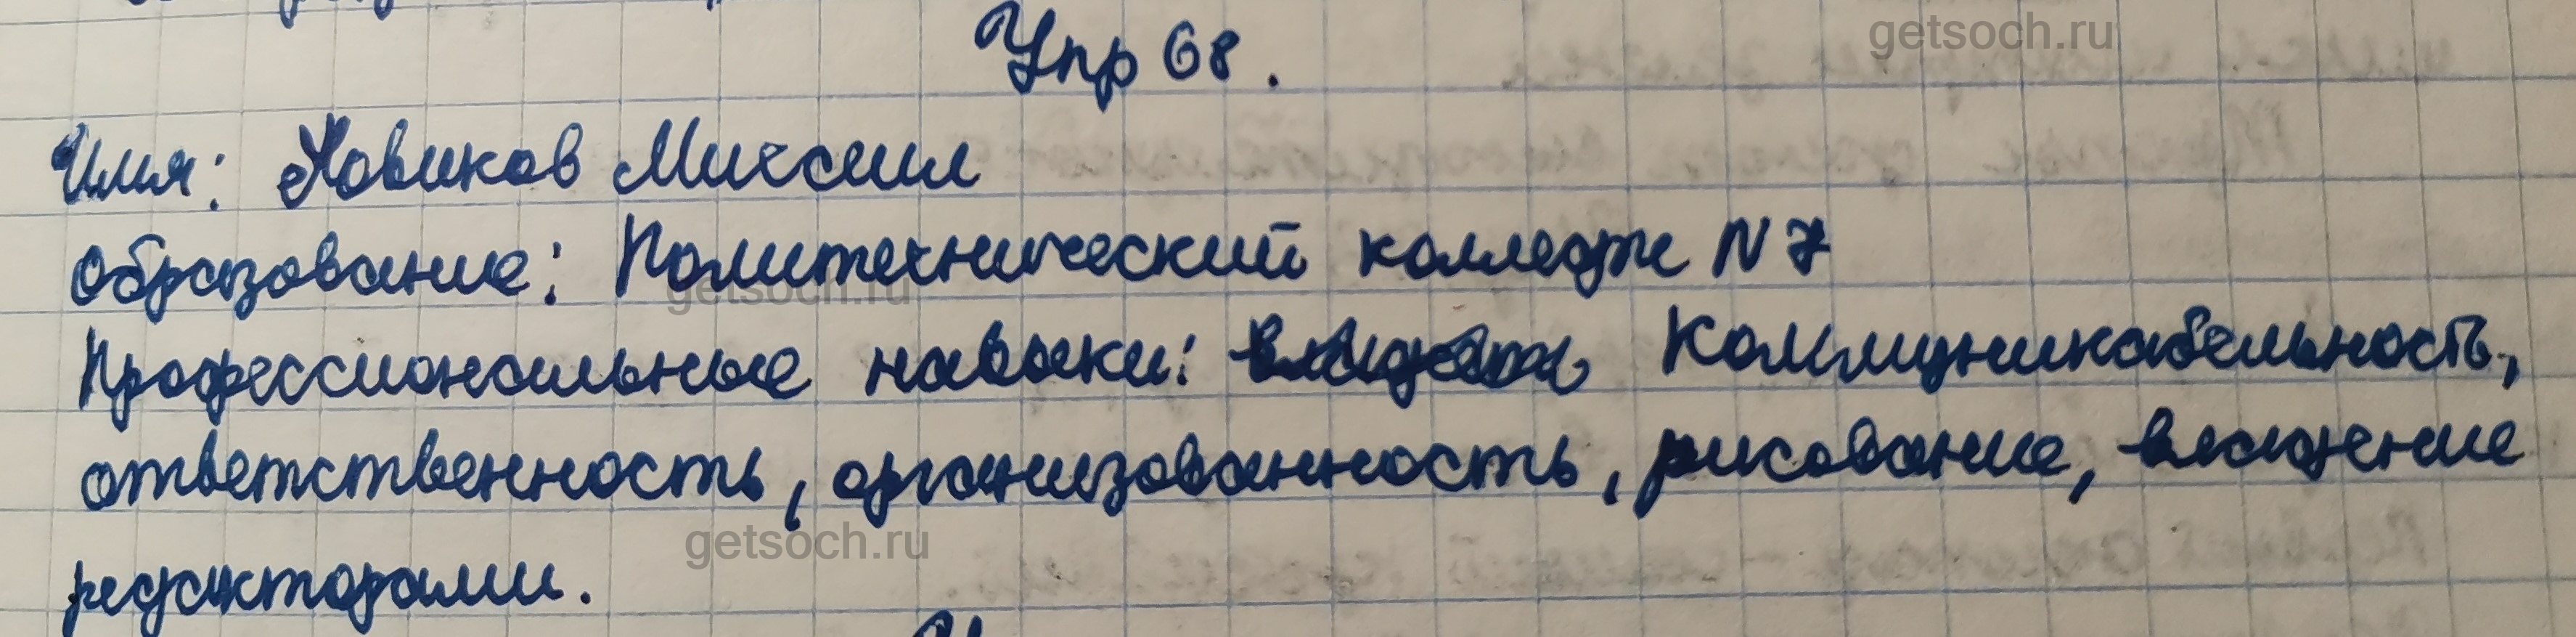 Упр 68.
Имя: Новиков Михаил
Образование: Политехнический колледж N 7
Профессиональные навыки: Коммуникабельность,
ответственность, организованность, рисование, владение
редакторами.
getsoch.ru
getsoch.ru
getsoch.ru